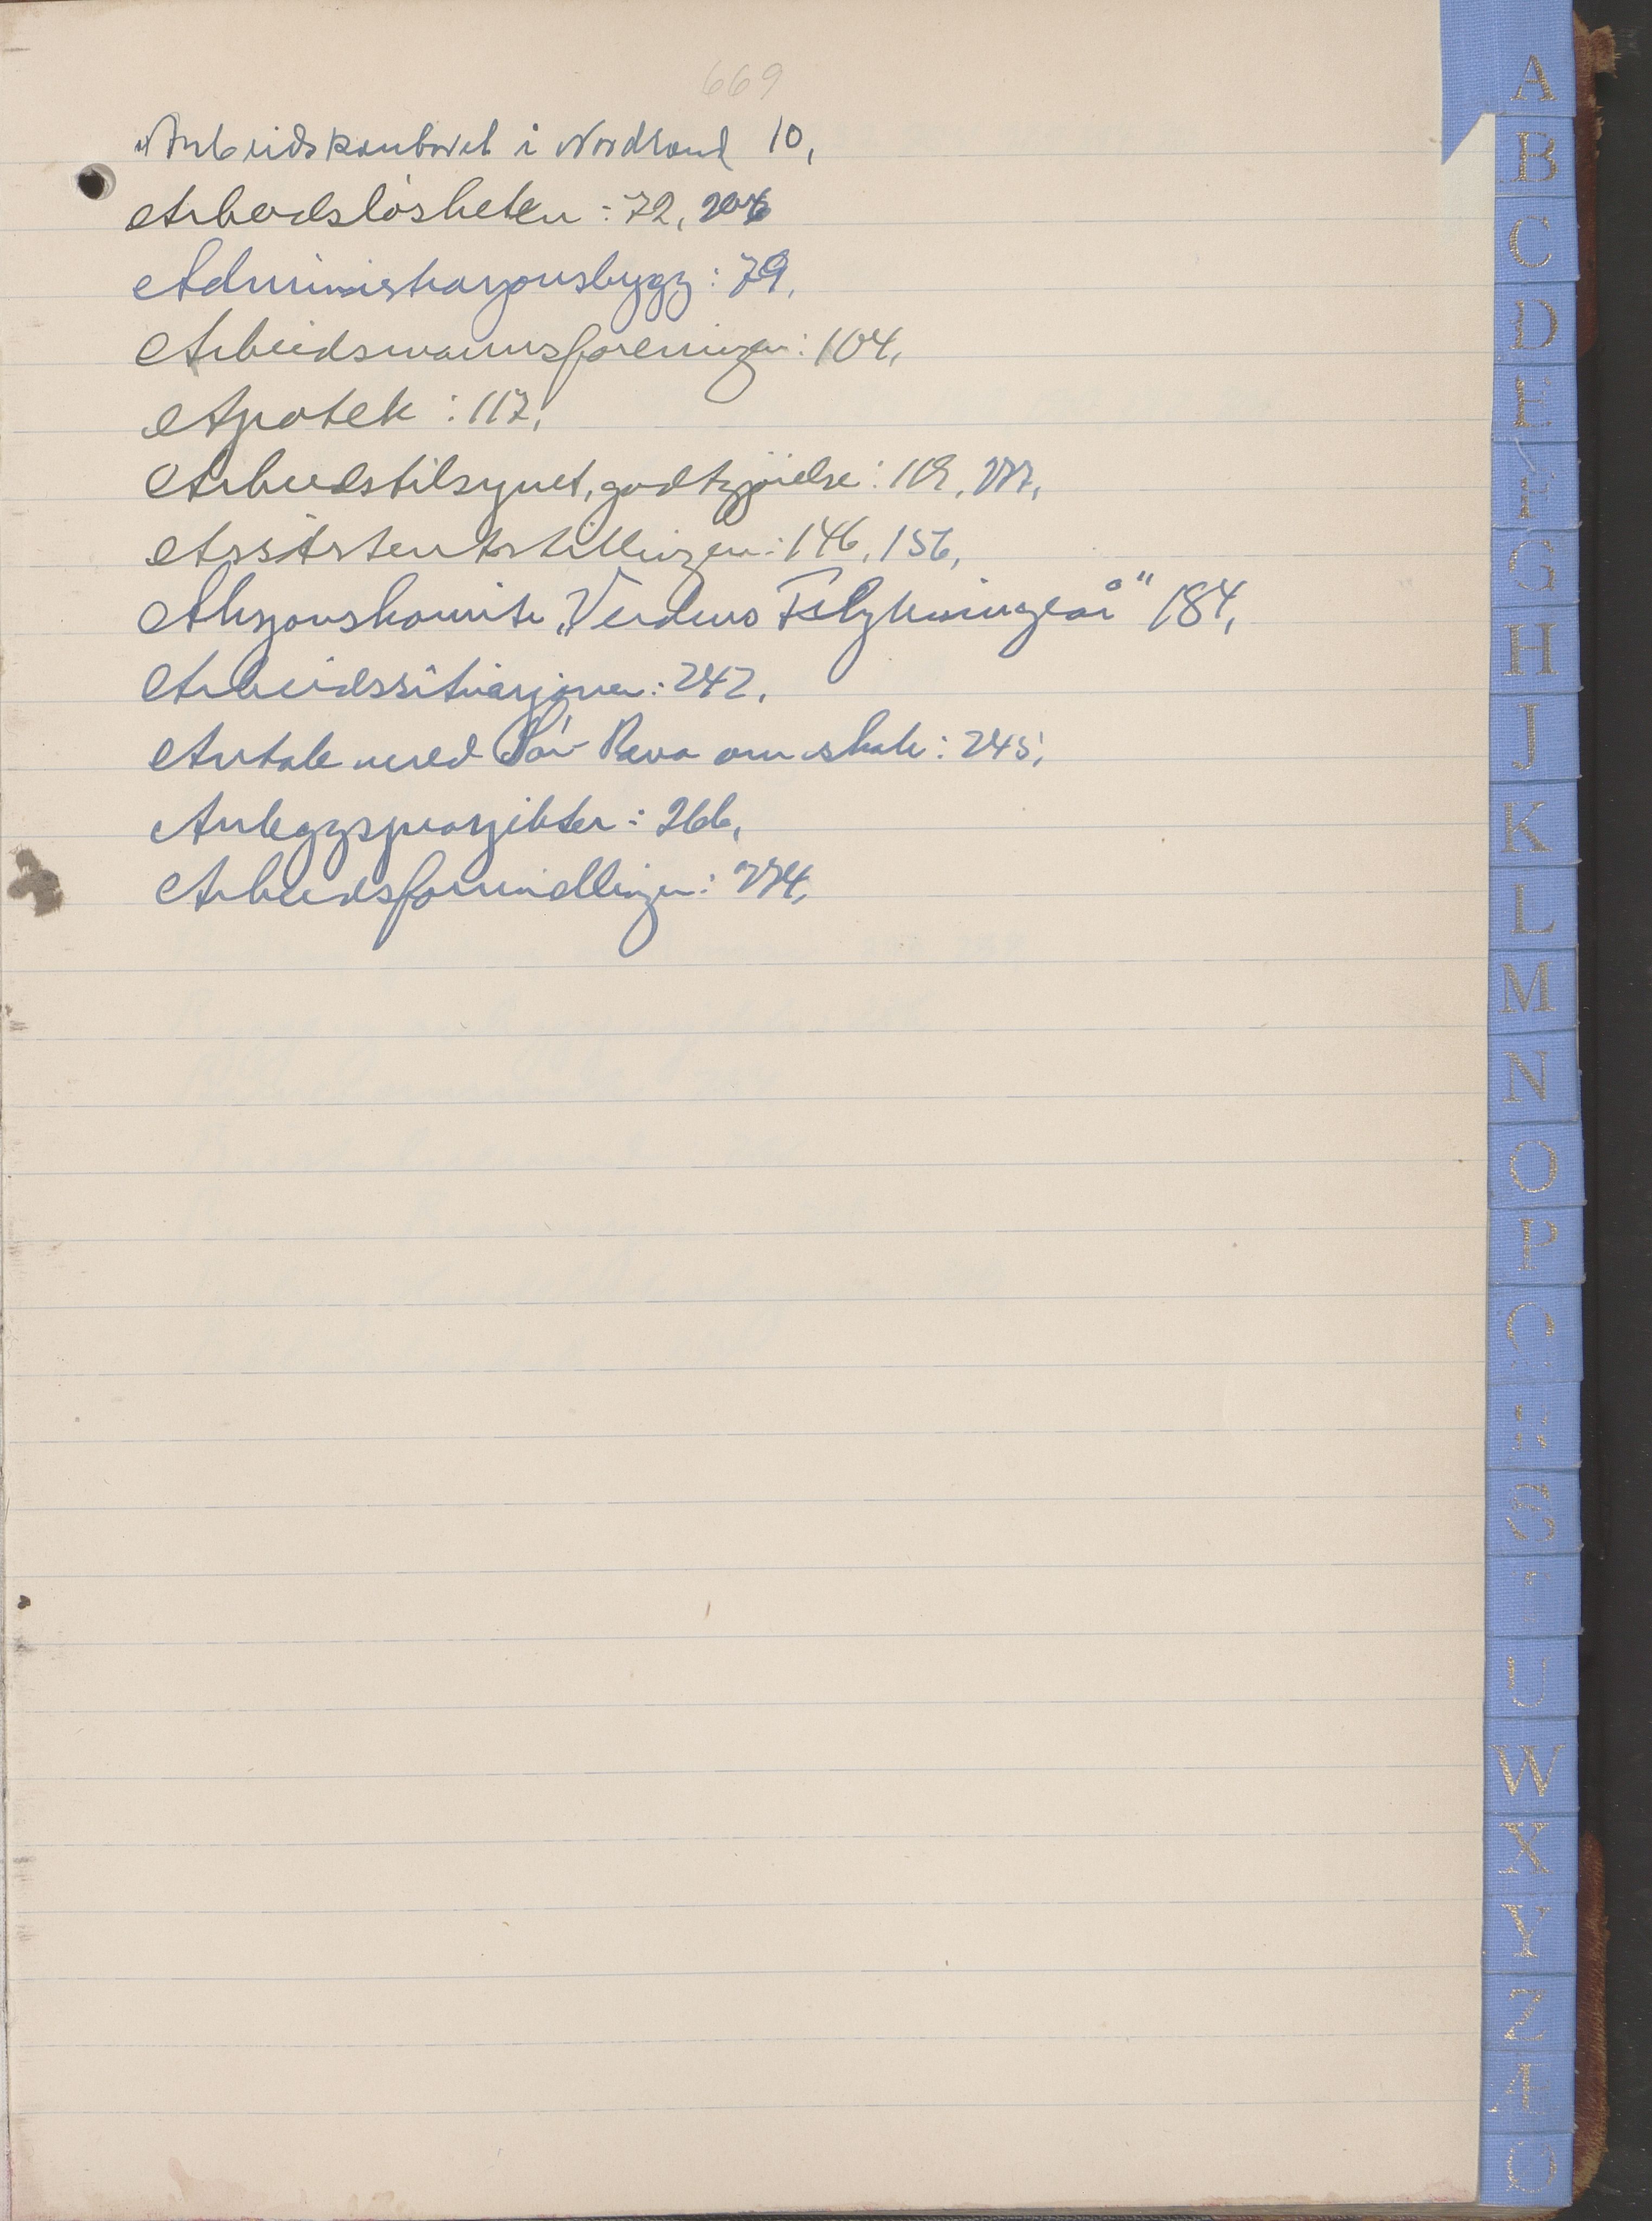 669
Arbeidskontoret i Nordland 10,
Arbeidsløsheten : 72, 204
Administrasjonsbygg : 79,
Arbeidsmannsforeningen : 104,
Apotek : 117,
Arbeidstilsynet, godtgjörelse : 119, 277,
Assistentstillingen : 146, 156,
Aksjonskomite „Verdens Flyktningeår" 184,
Arbeidssituasjonen : 242,
Avtale med Sör Rana om skatt : 245,
Anleggsprosjekter : 266,
Arbeidsformidlingen : 274,
A
B
C
D
E
F
G
H
J
K
L
M
N
O
P
Q
R
S
T
U
W
X
Y
Z
Æ
Ø